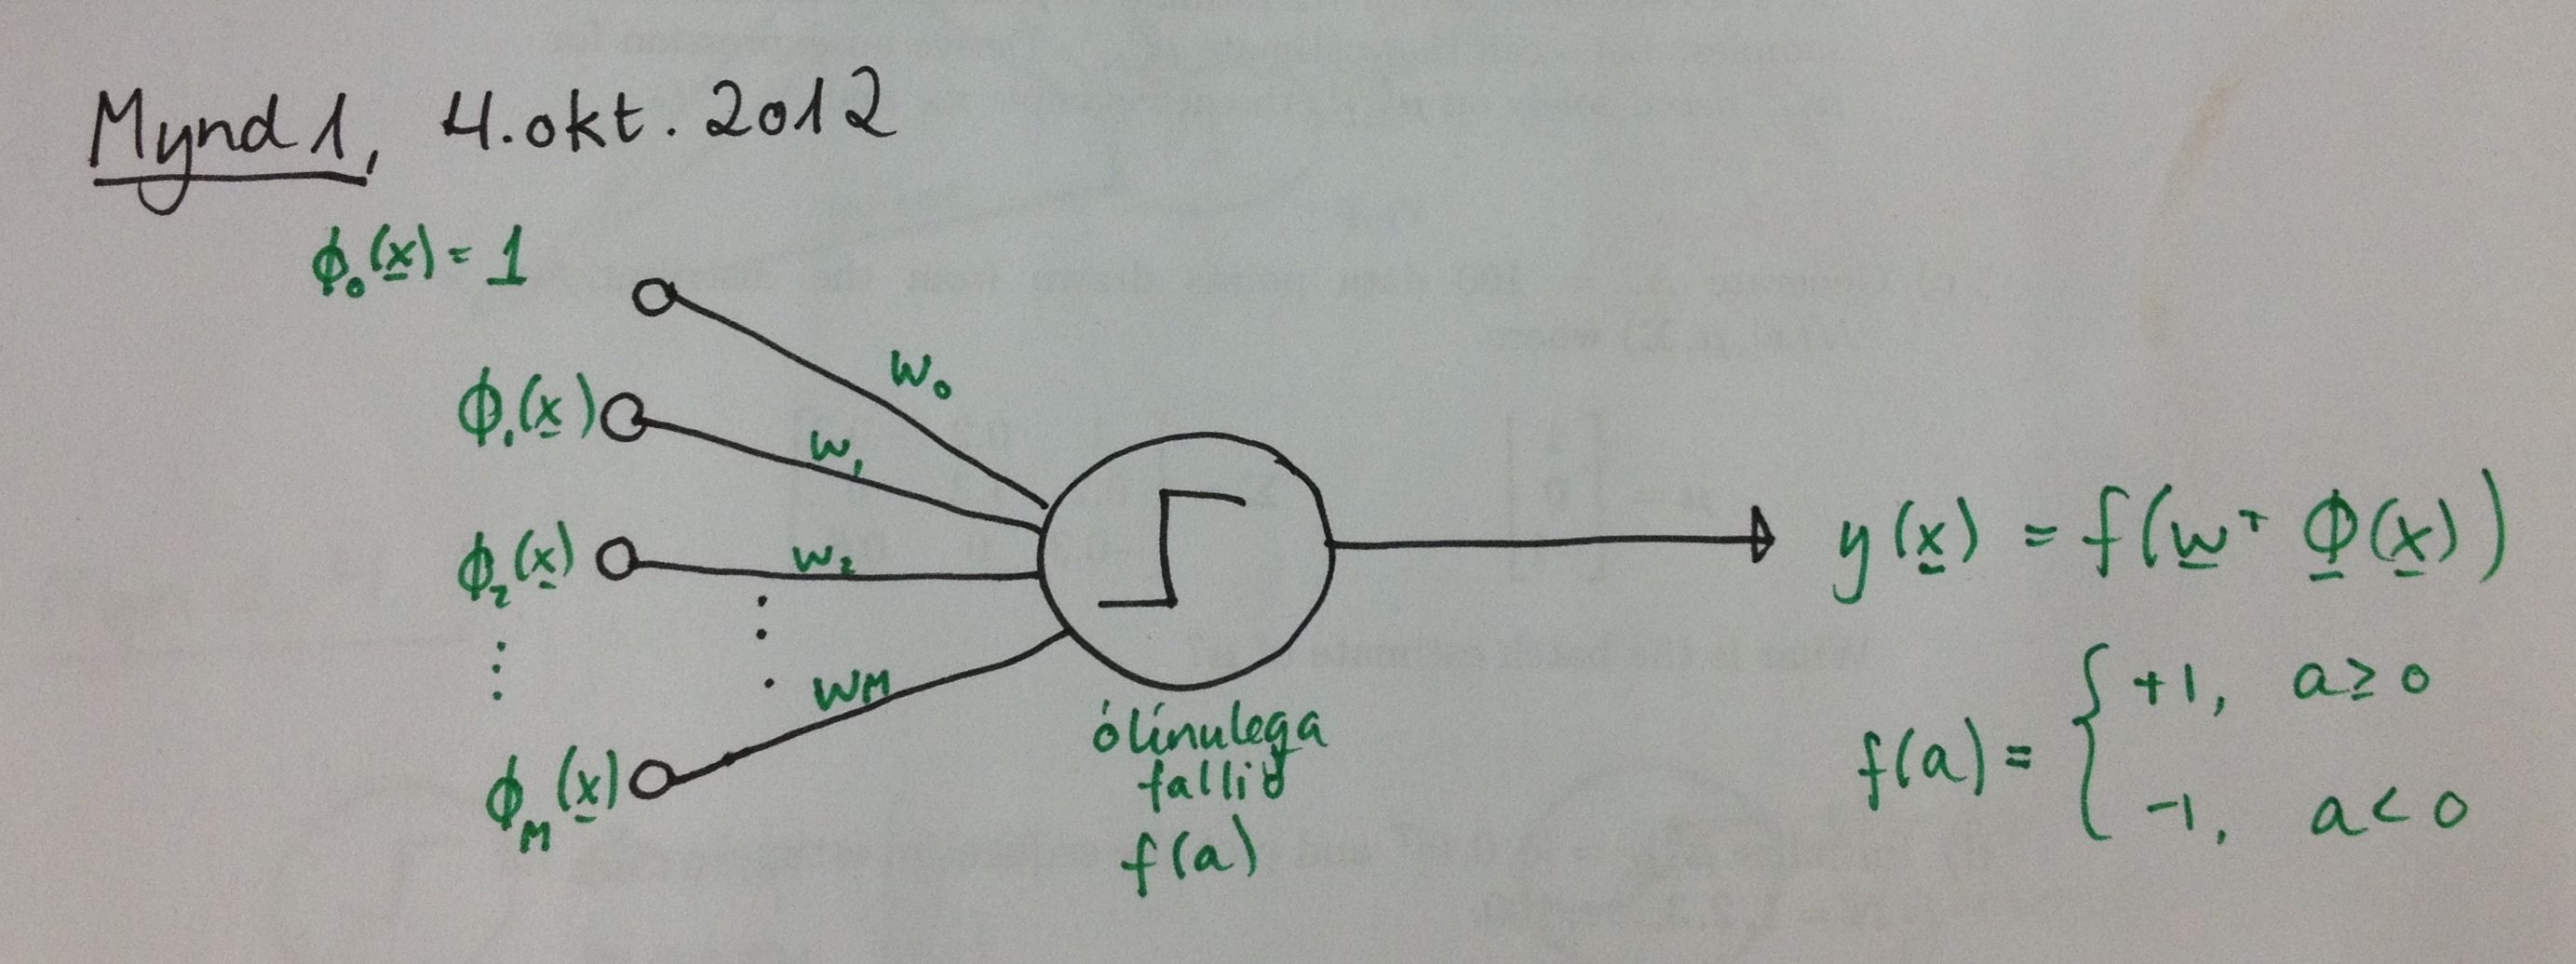 Mynd 1, 4. okt. 2012
ϕ₀(x) = 1
w₀
ϕ₁(x)
w₁
ϕ₂(x)
w₂
⋮
⋮
wM
ϕM(x)
ólínulega
fallið
f(a)
y(x) = f(wᵀ Φ(x))
f(a) = { +1, a ≥ 0
-1, a < 0